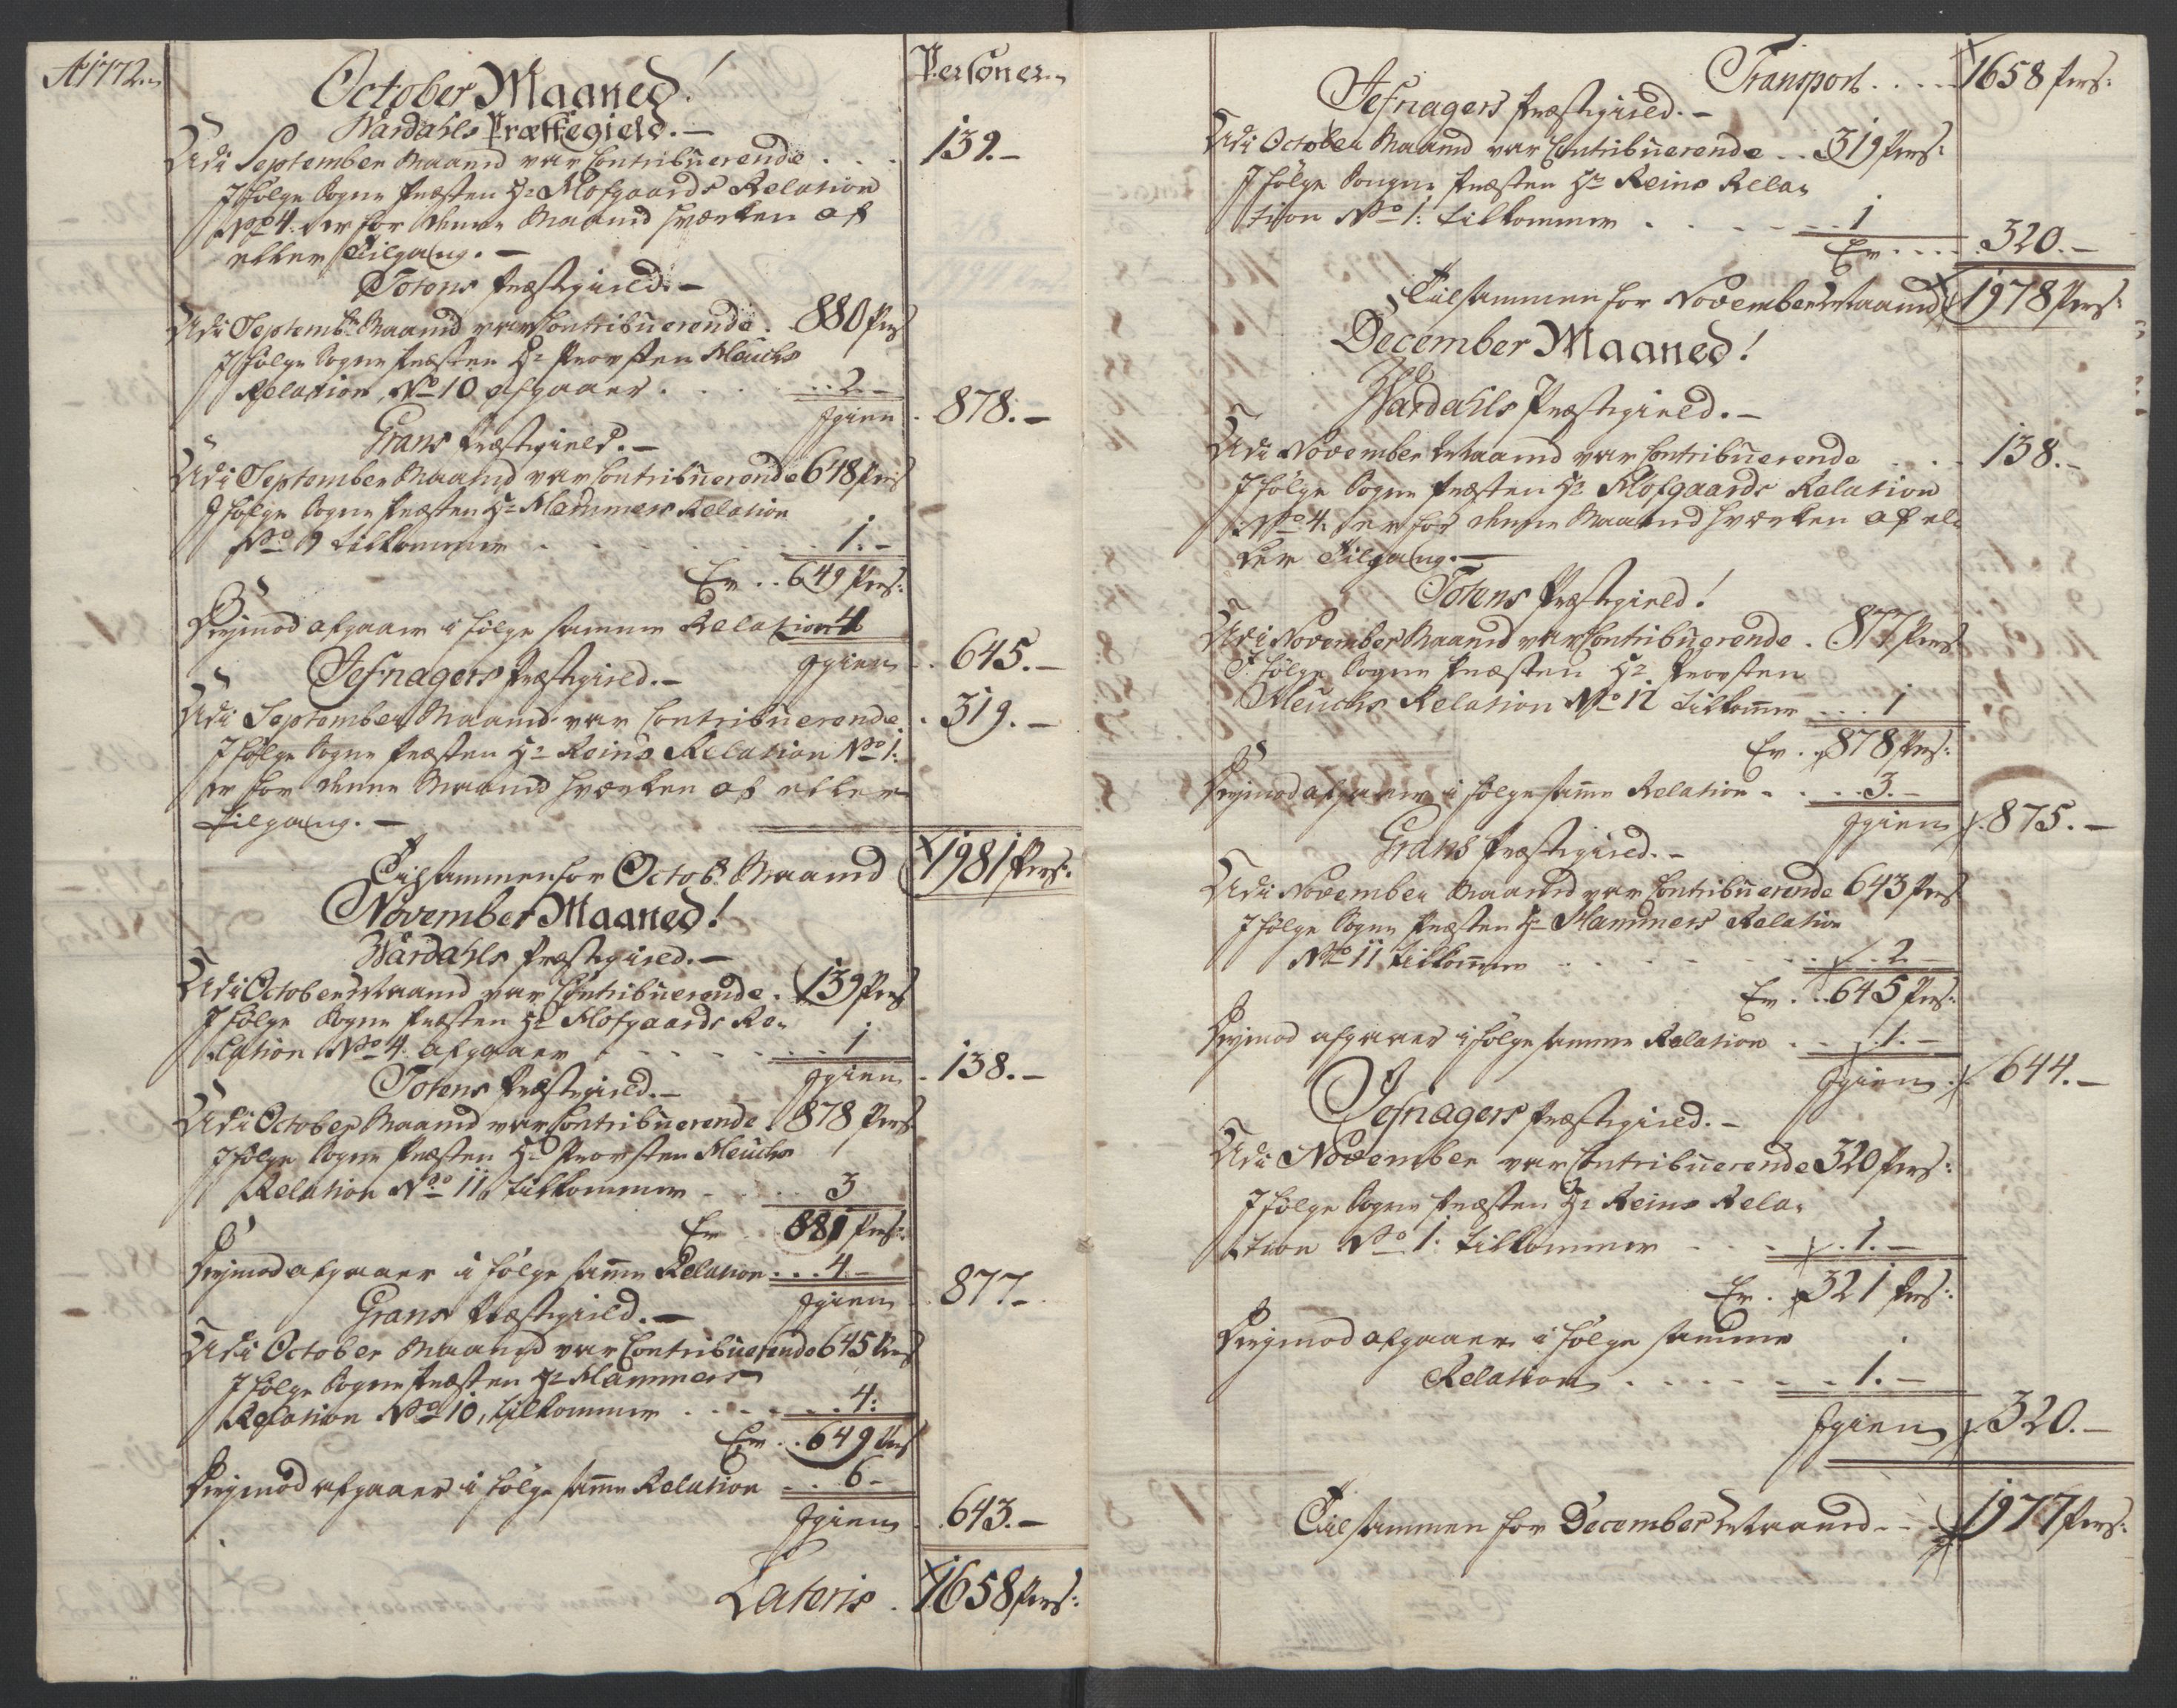 A 1772
Personer
October Maaned!
Wardahls Præstegield.
Udi September Maaned var Contribuerende . . . 139.
I følge Sogne Præsten Hr Klofgaards Relation
No 4. er for denne Maaned hverken af
eller Tilgang.
Totens Præstegield.
Udi Septembr Maaned var Contribuerende . 880 Pers
I følge Sogne Præsten Hr Provsten Meuchs
Relation, No 10 afgaaer . . . 2.
Igien . 878.
Grans Præstegield.
Udi September Maaned var Contribuerende 648 Pers
I følge Sogne Præsten Hr Hammers Relation
No 9 tilkommer . . . 1.
Er . . 649 Pers:
Derimod afgaaer i følge samme Relation 4
Igien . . 645.
Jefnagers Præstegield.
Udi September Maaned var Contribuerende . 319.
I følge Sogne Præsten Hr Reins Relation No 1:
er for denne Maaned hverken af eller
tilgang.
Tilsammen for Octobr Maaned 1981 Pers:
November Maaned!
Wardahls Præstegield.
Udi October Maaned var Contribuerende . 139 Pers
I følge Sogne Præsten Hr Klofgaards Re-
lation No 4. afgaaer . . . 1
Igien . 138.
Totens Præstegield.
Udi October Maaned var Contribuerende . 878 Pers
I følge Sogne Præsten Hr Provsten Meuchs
Relation No 11, tilkommer . . . 3
Er 881 Pers:
Derimod afgaaer i følge samme Relation . . . 4
Igien . 877.
Grans Præstegield.
Udi October Maaned var Contribuerende 645 Pers
I følge Sogne Præsten Hr Hammers
Relation No 10, tilkommer . . . 4:
Er . . 649 Pers
Derimod afgaaer i følge samme Relation . . 6
Igien . 643.
Lateris . 1658 Pers:
Transport . . . . 1658 Pers:
Jefnagers Præstegield.
Udi October Maaned var Contribuerende . . 319 Pers:
I følge Sogne Præsten Hr Reins Rela-
tion No 1: tilkommer . . . 1
Er . . . . 320.
Tilsammen for November Maaned 1978 Pers:
December Maaned!
Wardahls Præstegield.
Udi November Maaned var Contribuerende . . . 138.
I følge Sogne Præsten Hr Klofgaards Relation
No 4. er for denne Maaned hverken af el-
ler Tilgang.
Totens Præstegield!
Udi November Maaned var Contribuerende . 877 Pers
I følge Sogne Præsten Hr Provsten
Meuchs Relation No 12 tilkommer . . . 1
Er . 878 Pers:
Derimod afgaaer i følge samme Relation . . . 3.
Igien 875.
Grans Præstegield.
Udi November Maaned var Contribuerende 643 Pers
I følge Sogne Præsten Hr Hammers Relation
No 11 tilkommer . . . 2
Er . . 645 Pers:
Derimod afgaaer i følge samme Relation . . . 1.
Igien . 644.
Jefnagers Præstegield.
Udi November var Contribuerende 320 Pers:
I følge Sogne Præsten Hr Reins Rela-
tion No 1: tilkommer . . . 1.
Er . 321 Pers:
Derimod afgaaer i følge samme
Relation . . . 1.
Igien 320.
Tilsammen for December Maaned . . 1977 Pers: